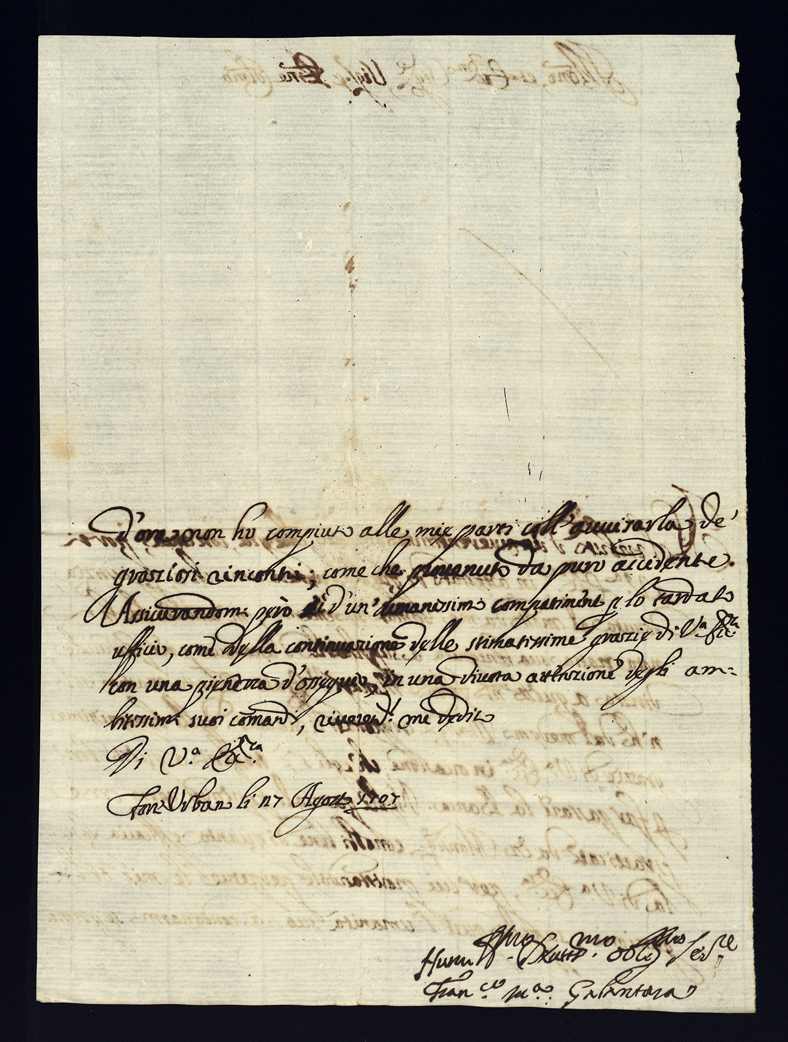 d'ora non hò compiuto alle mie parti coll'avvisarla de'
graziosi rincontri, come che provenuto da puro accidente.
Assicurandomi però d'un' umanissimo compatimento p lo tardato
ufficio, come della continuazione delle stimatissime grazie di V.ª Ecc.ª
con una pienezza d'ossequio, in una divota attenzione degli am=
bitissimi suoi comandi, me dedico
Di V.ª Ecc.ª
Forte Urbano li 17 Agosto 1707
Humil.mo Divot.mo Oblig.mo Ser.re
Fran.co M.ª Galantara